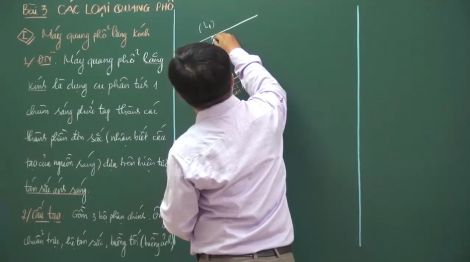 Bài 3 CÁC LOẠI QUANG PHỔ
I) Máy quang phổ lăng kính
1/ ĐN: Máy quang phổ lăng
kính là dụng cụ phân tích 1
chùm sáng phức tạp thành các
thành phần đơn sắc (nhận biết cấu
tạo của nguồn sáng) dựa trên hiện tượng
tán sắc ánh sáng.
2/ Cấu tạo Gồm 3 bộ phận chính.
chuẩn trực, hệ tán sắc, buồng tối (buồng ảnh)
(L1)